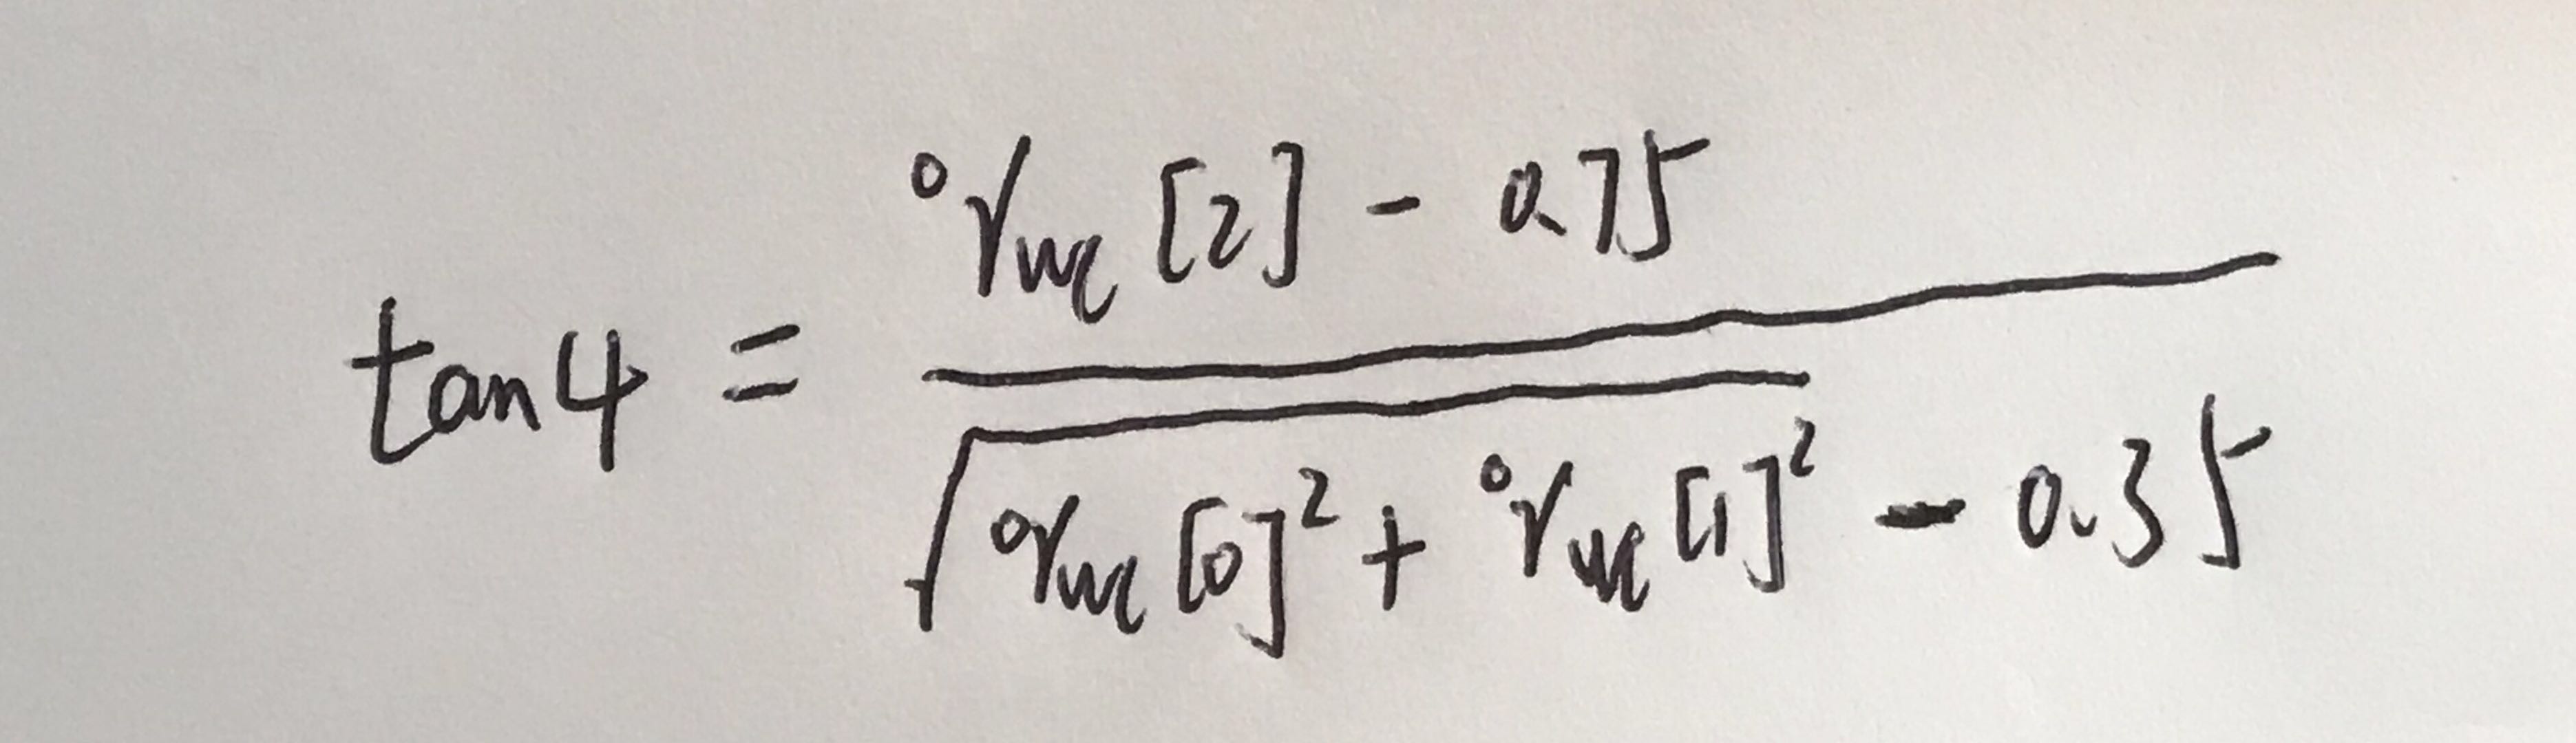 tan4 = (⁰r_wc [2] - 0.75) / (√(⁰r_wc [0]² + ⁰r_wc [1]²) - 0.35)